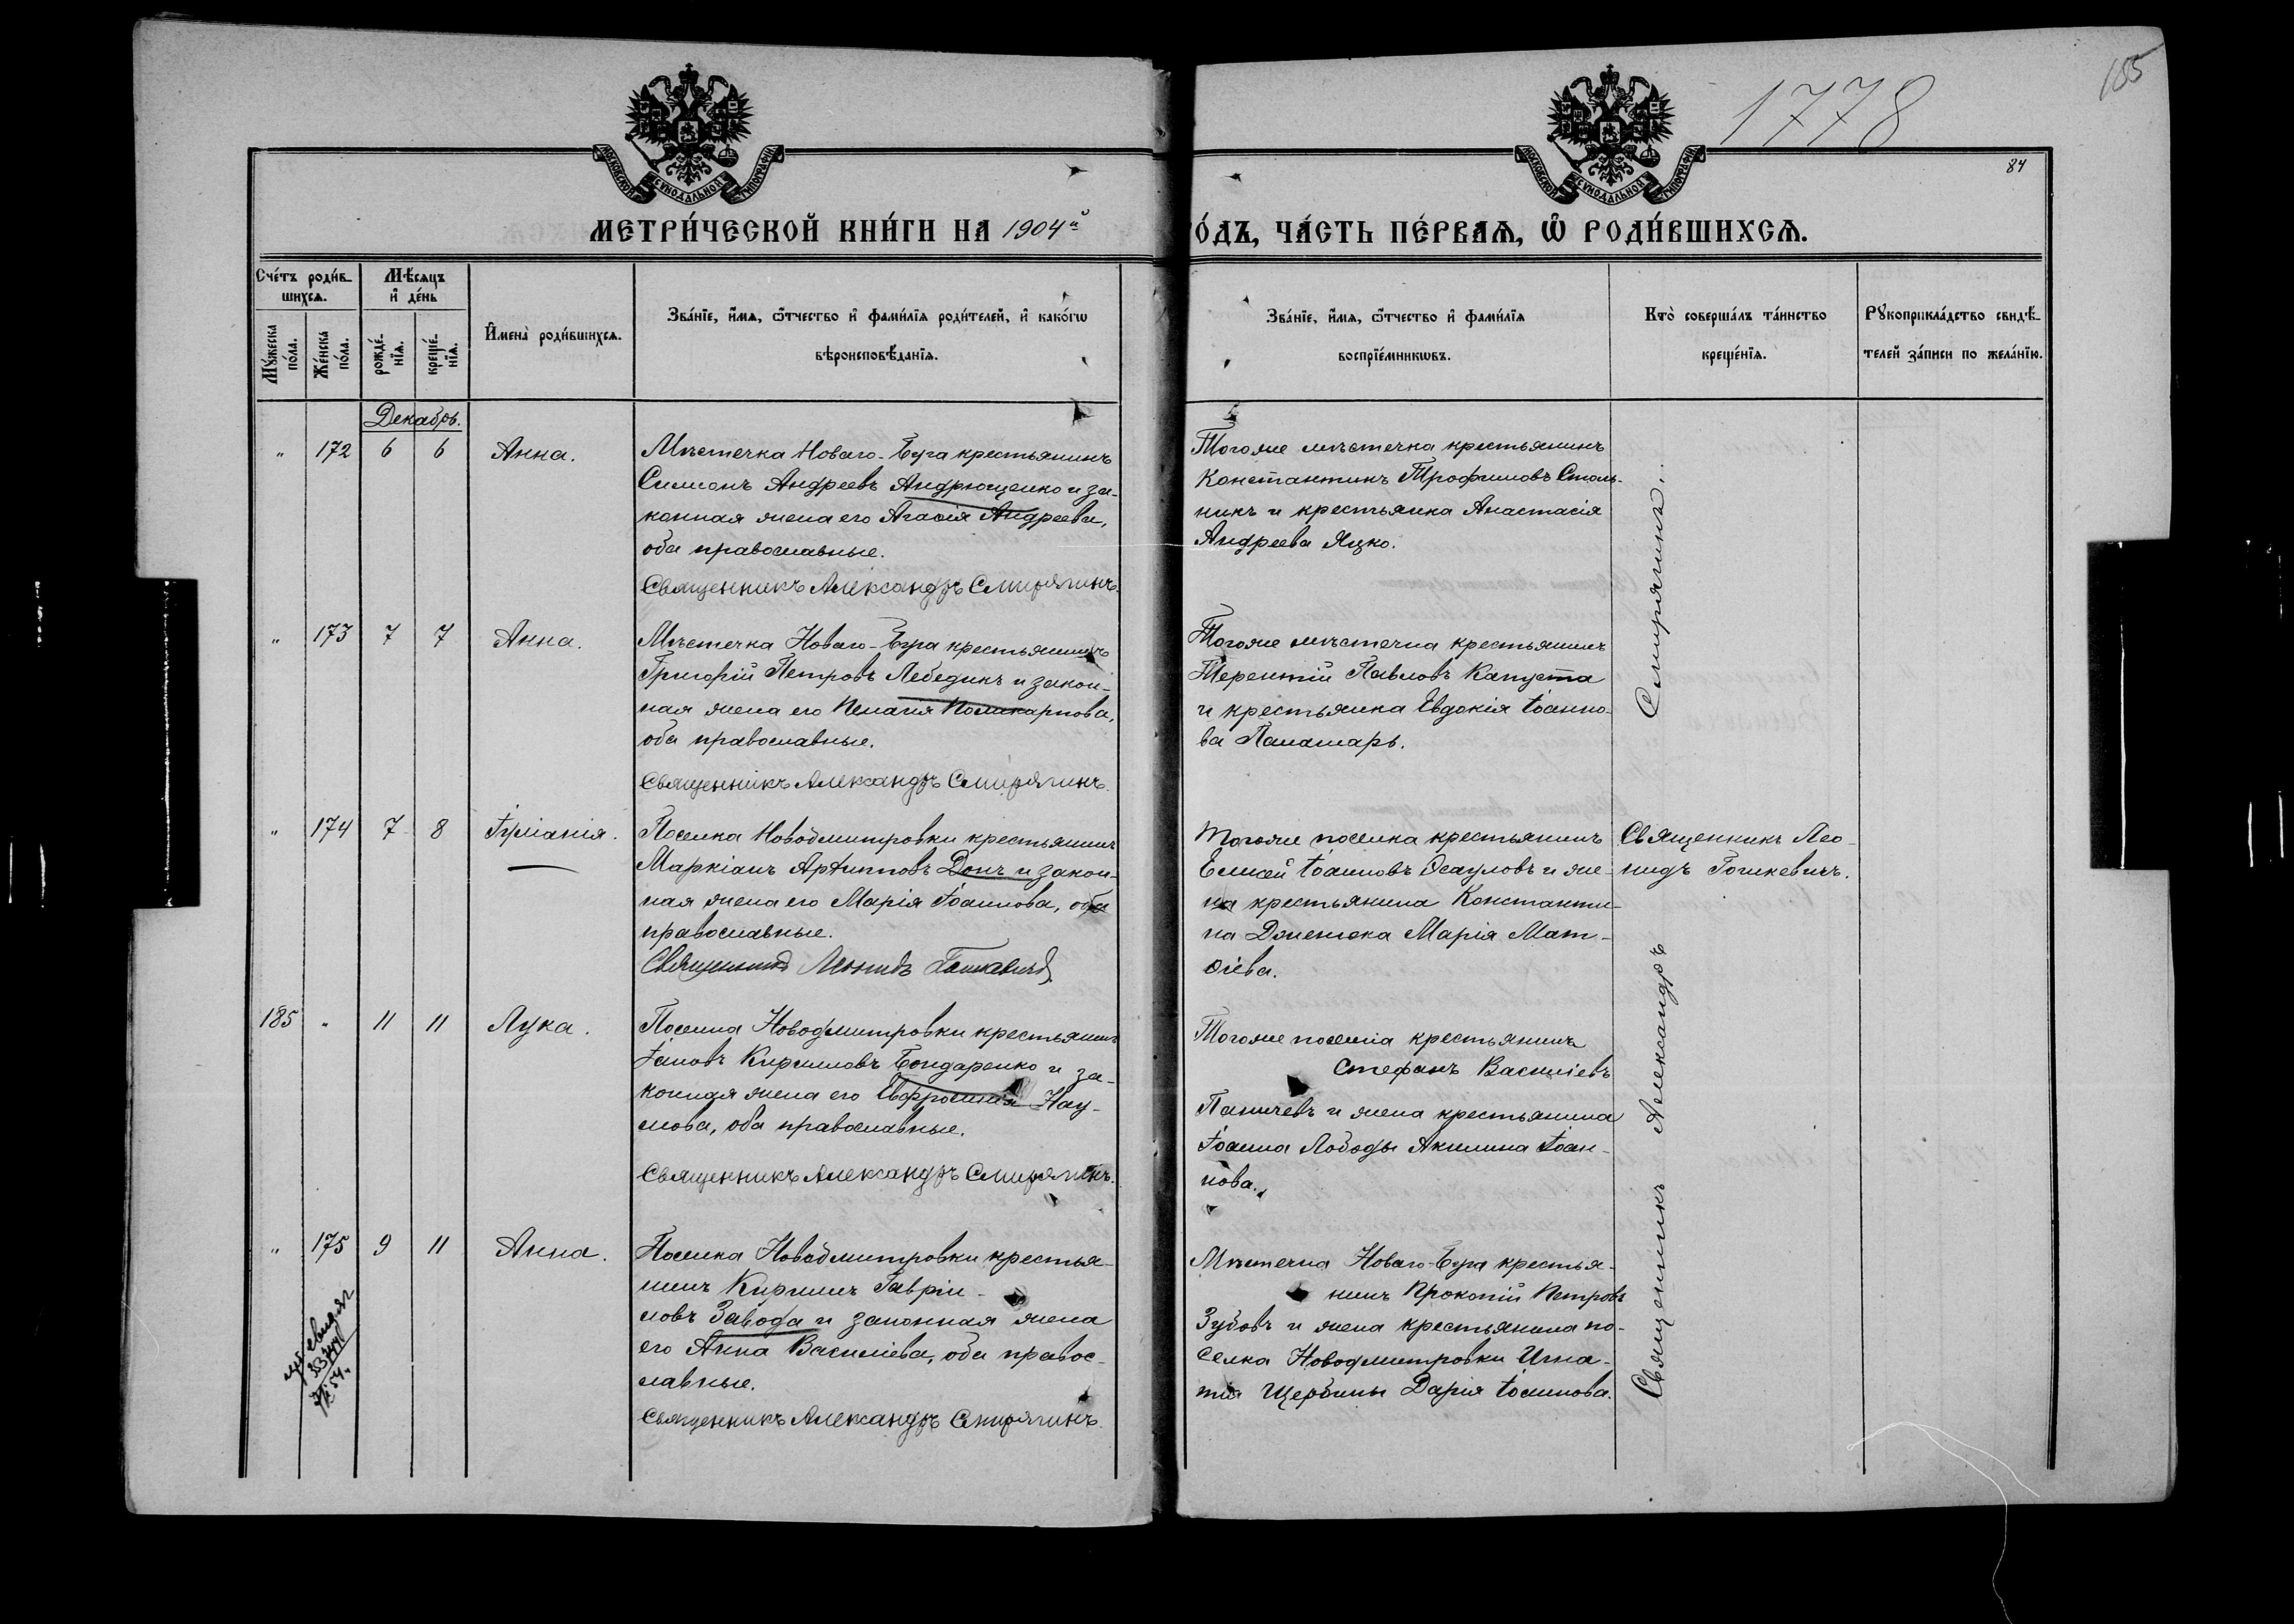 1778
185
84
МОСКОВСКОЙ СѴНОДАЛЬНОЙ ТИПОГРАФІИ
МОСКОВСКОЙ СѴНОДАЛЬНОЙ ТИПОГРАФІИ
МЕТРИ́ЧЕСКОЙ КНИ́ГИ НА 1904й
О́ДЪ, ЧА́СТЬ ПЕ́РВАѦ, Ѡ РОДИ́ВШИХСѦ.
Сче́тъ роди́в-
шихсѧ.
Мѣ́сѧцъ
и҆ де́нь
Мꙋ́жеска по́ла.
Же́нска по́ла.
рожде́-
нїѧ.
креще́-
нїѧ.
И҆мена̀ роди́вшихсѧ.
Зва́нїе, и҆́мѧ, ѻ҆́тчество и҆ фами́лїѧ роди́телей, и҆ како́гѡ
вѣроисповѣ́данїѧ.
Зва́нїе, и҆́мѧ, ѻ҆́тчество и҆ фами́лїѧ
воспрїе́мникѡвъ.
Кто̀ соверша́лъ та́инство
креще́нїѧ.
Рꙋкоприкла́дство свидѣ́-
телей за́писи по жела́нїю.
Декабрь.
" 172 6 6 Анна.
Мѣстечка Новаго-Буга крестьянинъ
Симеонъ Андреевъ Андрющенко и за-
конная жена его Агаѳія Андреева,
оба православные.
Священникъ Александръ Смирягинъ.
Тогоже мѣстечка крестьянинъ
Константинъ Трофимовъ Столь-
никъ и крестьянка Анастасія
Андреева Яцко.
" 173 7 7 Анна.
Мѣстечка Новаго-Буга крестьянинъ
Григорій Петровъ Лебединъ и закон-
ная жена его Пелагія Поликарпова,
оба православные.
Священникъ Александръ Смирягинъ.
Тогоже мѣстечка крестьянинъ
Терентій Павловъ Капуста
и крестьянка Евдокія Іоанно-
ва Паламарь.
" 174 7 8 Іуліанія.
Поселка Новодмитровки крестьянинъ
Маркіанъ Архиповъ Донъ и закон-
ная жена его Марія Іоаннова, оба
православные.
Священникъ Леонидъ Гошкевичъ
Тогоже поселка крестьянинъ
Елисей Іоанновъ Осауловъ и же-
на крестьянина Константи-
на Доненока Марія Мат-
ѳіева.
Священникъ Лео-
нидъ Гошкевичъ.
185 " 11 11 Лука.
Поселка Новодмитровки крестьянинъ
Іаковъ Кирилловъ Бондаренко и за-
конная жена его Евфросинія Нау-
мова, оба православные.
Священникъ Александръ Смирягинъ.
Тогоже поселка крестьянинъ
Стефанъ Василіевъ
Паничевъ и жена крестьянина
Іоанна Лободы Акилина Іоан-
нова.
" 175 9 11 Анна.
Поселка Новодмитровки крестья-
нинъ Кириллъ Гавріи-
ловъ Завода и законная жена
его Анна Василіева, оба правос-
лавные.
Священникъ Александръ Смирягинъ.
Мѣстечка Новаго-Буга крестья-
нинъ Прокопій Петровъ
Зубовъ и жена крестьянина по-
селка Новодмитровки Игна-
тія Щербины Дарія Іоаннова.
Священникъ Александръ Смирягинъ.